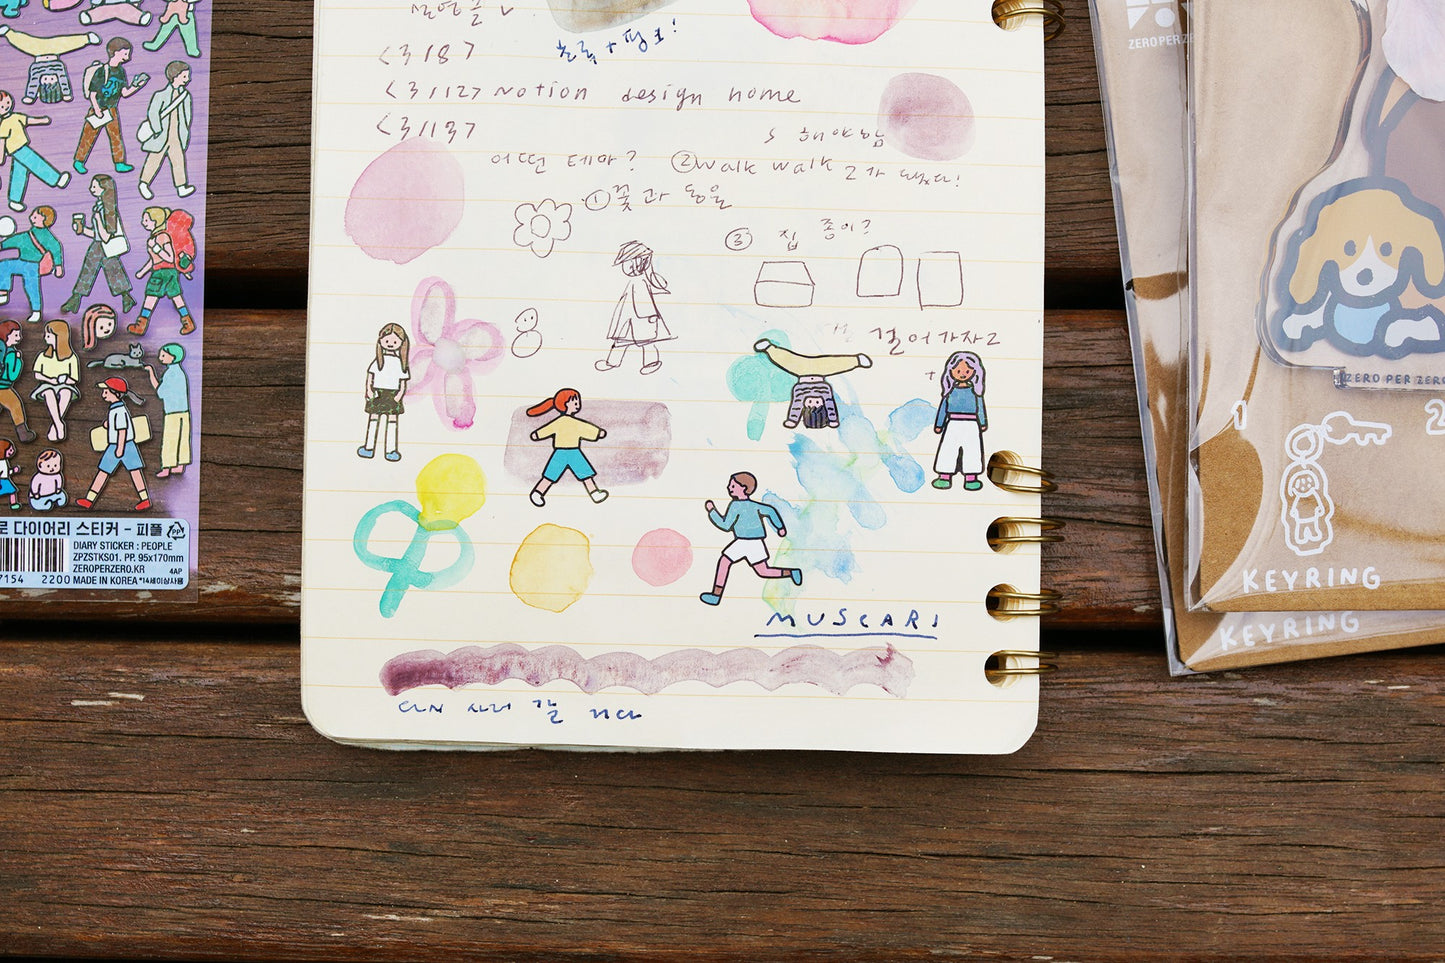 <3/8>
초록+핑크!
<3/12> Notion design home
<3/13>
해야함
어떤 테마? ②walk walk 2가 됐다!
①꽃과 동물
③ 집 종이?
걸어가자고
+
MUSCARI
다시 사러 갈 거다
로 다이어리 스티커 - 피플
PP
DIARY STICKER : PEOPLE
ZPZSTKS01. PP. 95x170mm
ZEROPERZERO.KR 4AP
7154 2200 MADE IN KOREA *14세이상사용
ZEROPERZE
ZERO PER ZERO
1 2
KEYRING
KEYRING